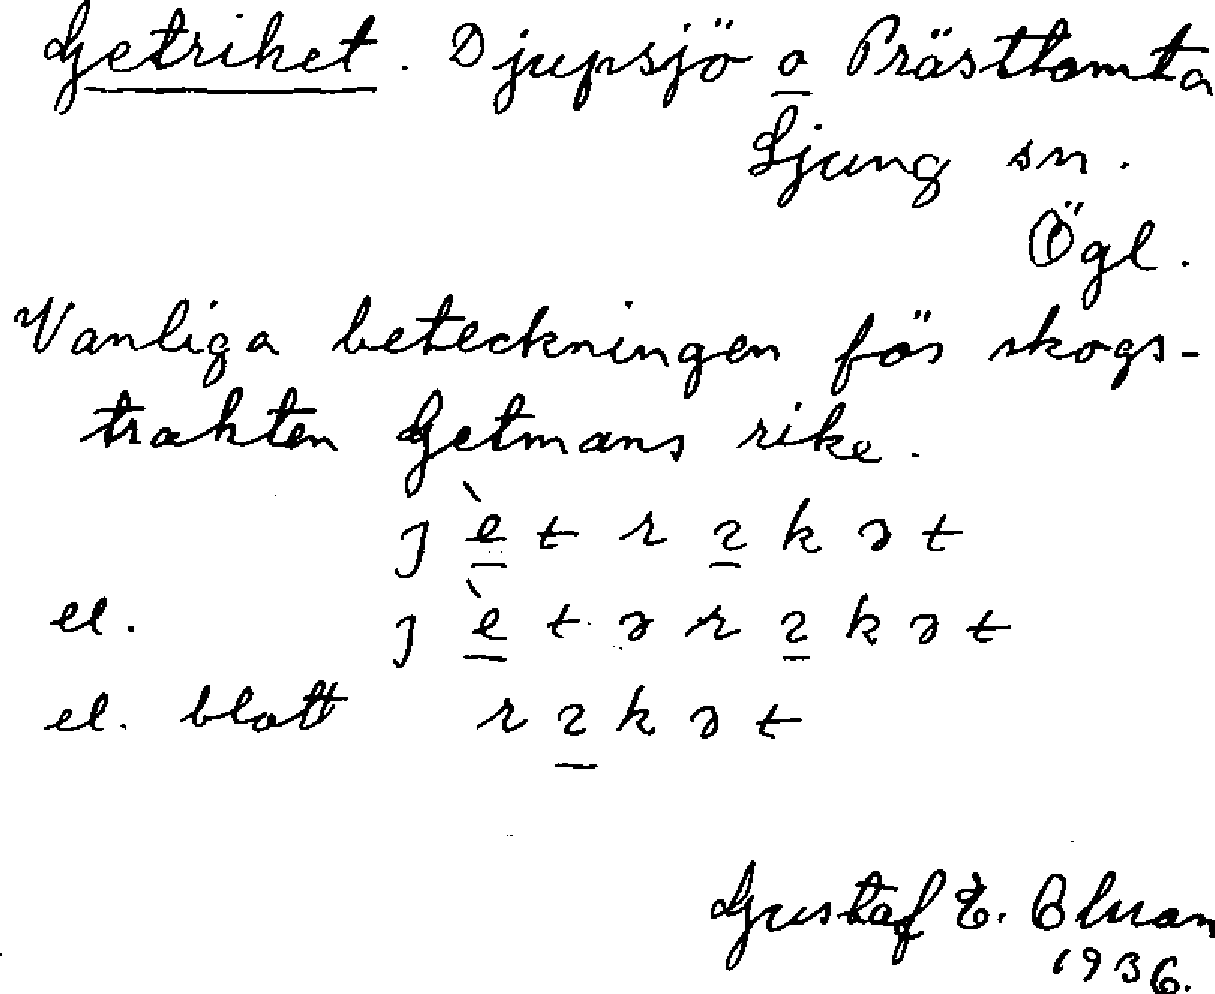 Getriket. Djupsjö o Prästtomta
Ljung sn.
Ögl.
Vanliga beteckningen för skogs-
trakten Getmans rike.
ȷ è t r ꝛ k ə t
el. ȷ è t ə r ꝛ k ə t
el. blott r ꝛ k ə t
Gustaf E.
1936.